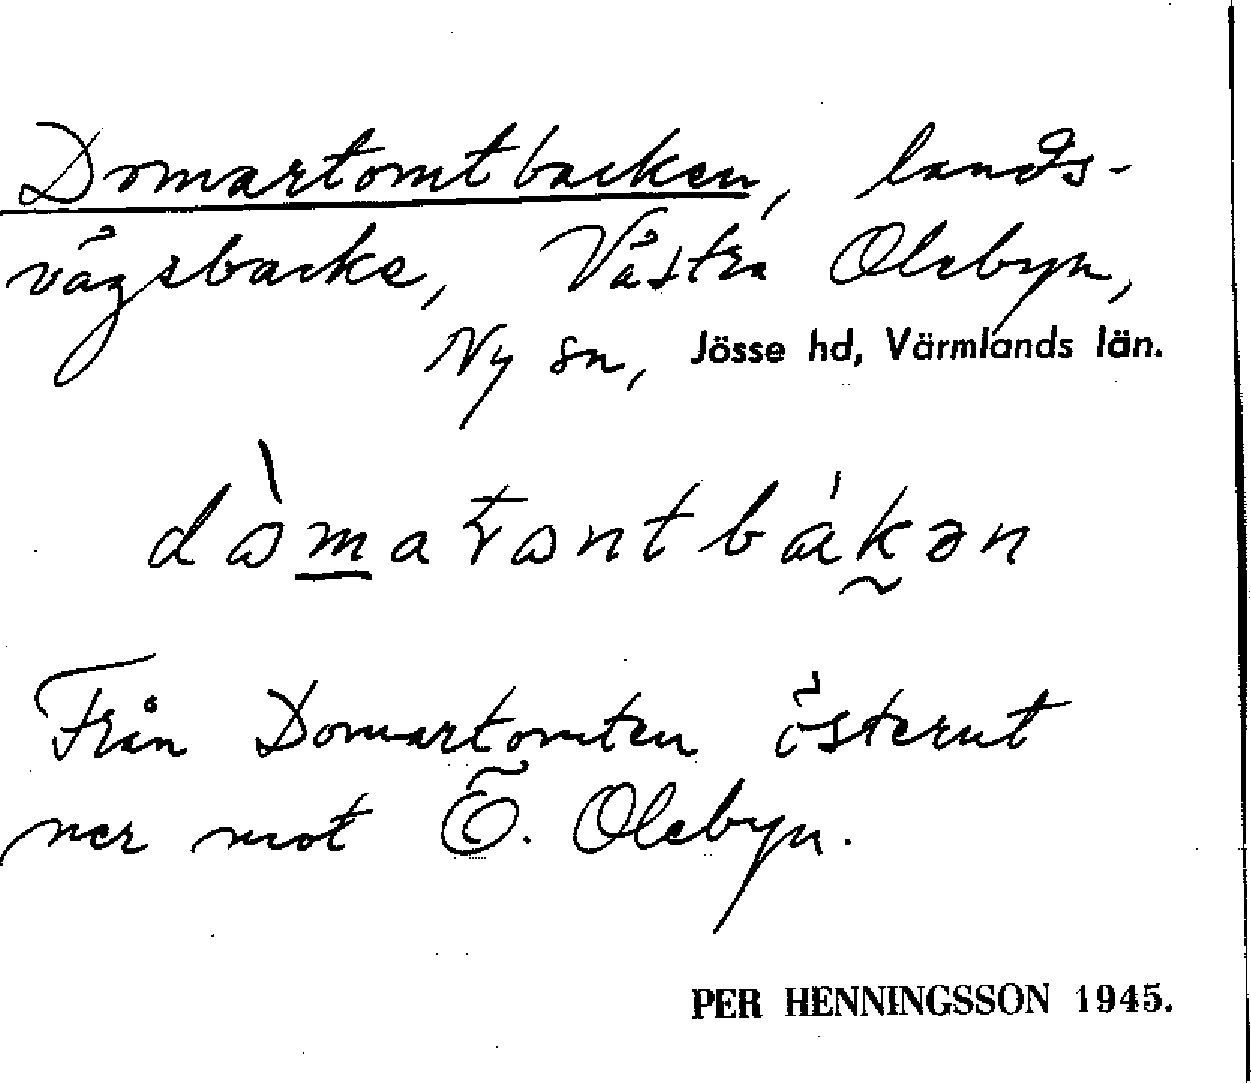 Domartomtbacken, lands-
vägsbacke, Västra Olebyn,
Ny sn, Jösse hd, Värmlands län.
Från Domartomten österut
ner mot Ö. Olebyn.
PER HENNINGSSON 1945.